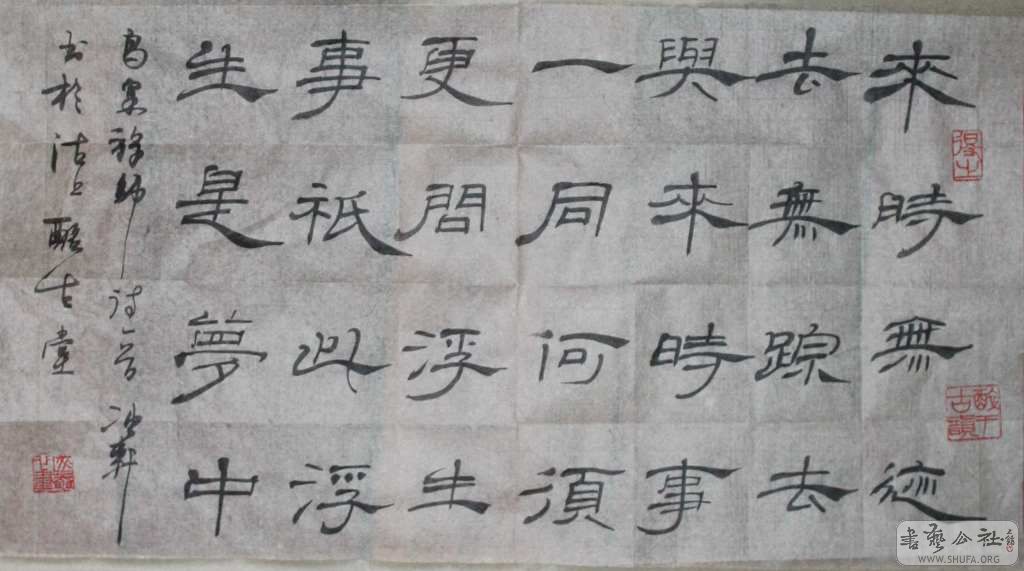 來時無迹
去無踪去
與來時事
一同何須
更問浮生
事祇此浮
生是夢中
鳥窠禪師詩一首
書於沽上古堂
書藝公社
WWW.SHUFA.ORG